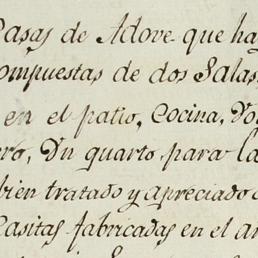 Casas de Adove que hay
ompuestas de dos Salas
en el patio, Cocina,
ro, Un quarto para la
bien tratado y apreciado
Casitas fabricadas en el